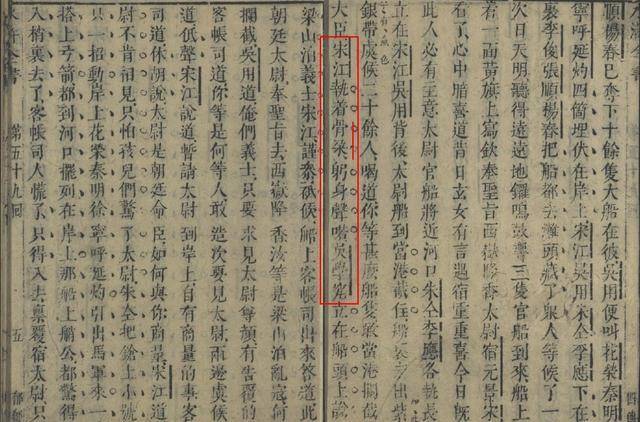 順楊春巴奪下十餘隻大船在彼吳用便叫花榮秦明
寧呼延灼四箇埋伏在岸上宋江吳用朱仝李應下在
裏李俊張順楊春把船都去灘頭藏了衆人等候了一
次日天明聽得遠遠地鑼鳴鼓響三隻官船到來船上
着一面黃旗上寫欽奉聖旨西嶽降香太尉宿元景宋
看了心中暗喜道昔日玄女有言遇宿重重喜今日既
此人必有主意太尉官船將近河口朱仝李應各執長
立在宋江吳用背後太尉船到當港截住船裏走出紫
銀帶虞候二十餘人喝道你等甚麼船隻敢當港攔截
大臣宋江執着骨朶躬身聲喏吳學究立在船頭上說
梁山泊義士宋江謹參祗候船上客帳司出來答道此
朝廷太尉奉聖旨去西嶽降香汝等是梁山泊亂寇何
攔截吳用道俺們義士只要求見太尉尊顏有告覆的
客帳司道你等是何等人敢造次要見太尉兩邊虞候
道低聲宋江說道暫請太尉到岸上自有商量的事客
司道休胡說太尉是朝廷命臣如何與你商量宋江道
尉不肯相見只怕孩兒們驚了太尉朱仝把鎗上小號
只一招動岸上花榮秦明徐寧呼延灼引出馬軍來一
搭上弓箭都到河口擺列在岸上那船上艄公都驚得
入梢裏去了客帳司人慌了只得入去稟覆宿太尉只
第五十九回
五